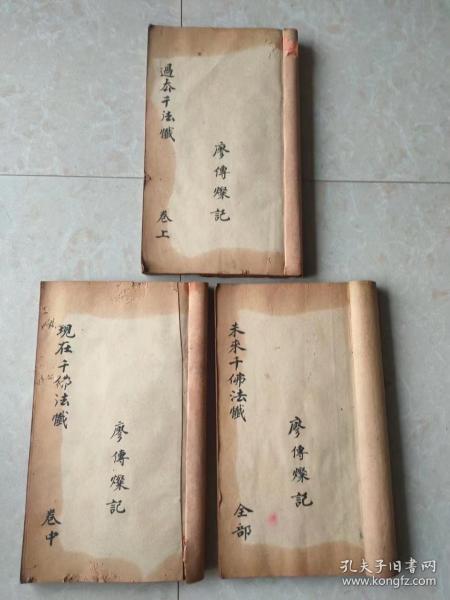 過去千法懺
卷上
廖傳燦記
現在千佛法懺
卷中
廖傳燦記
未來千佛法懺
全部
廖傳燦記
孔夫子旧书网
www.kongfz.com